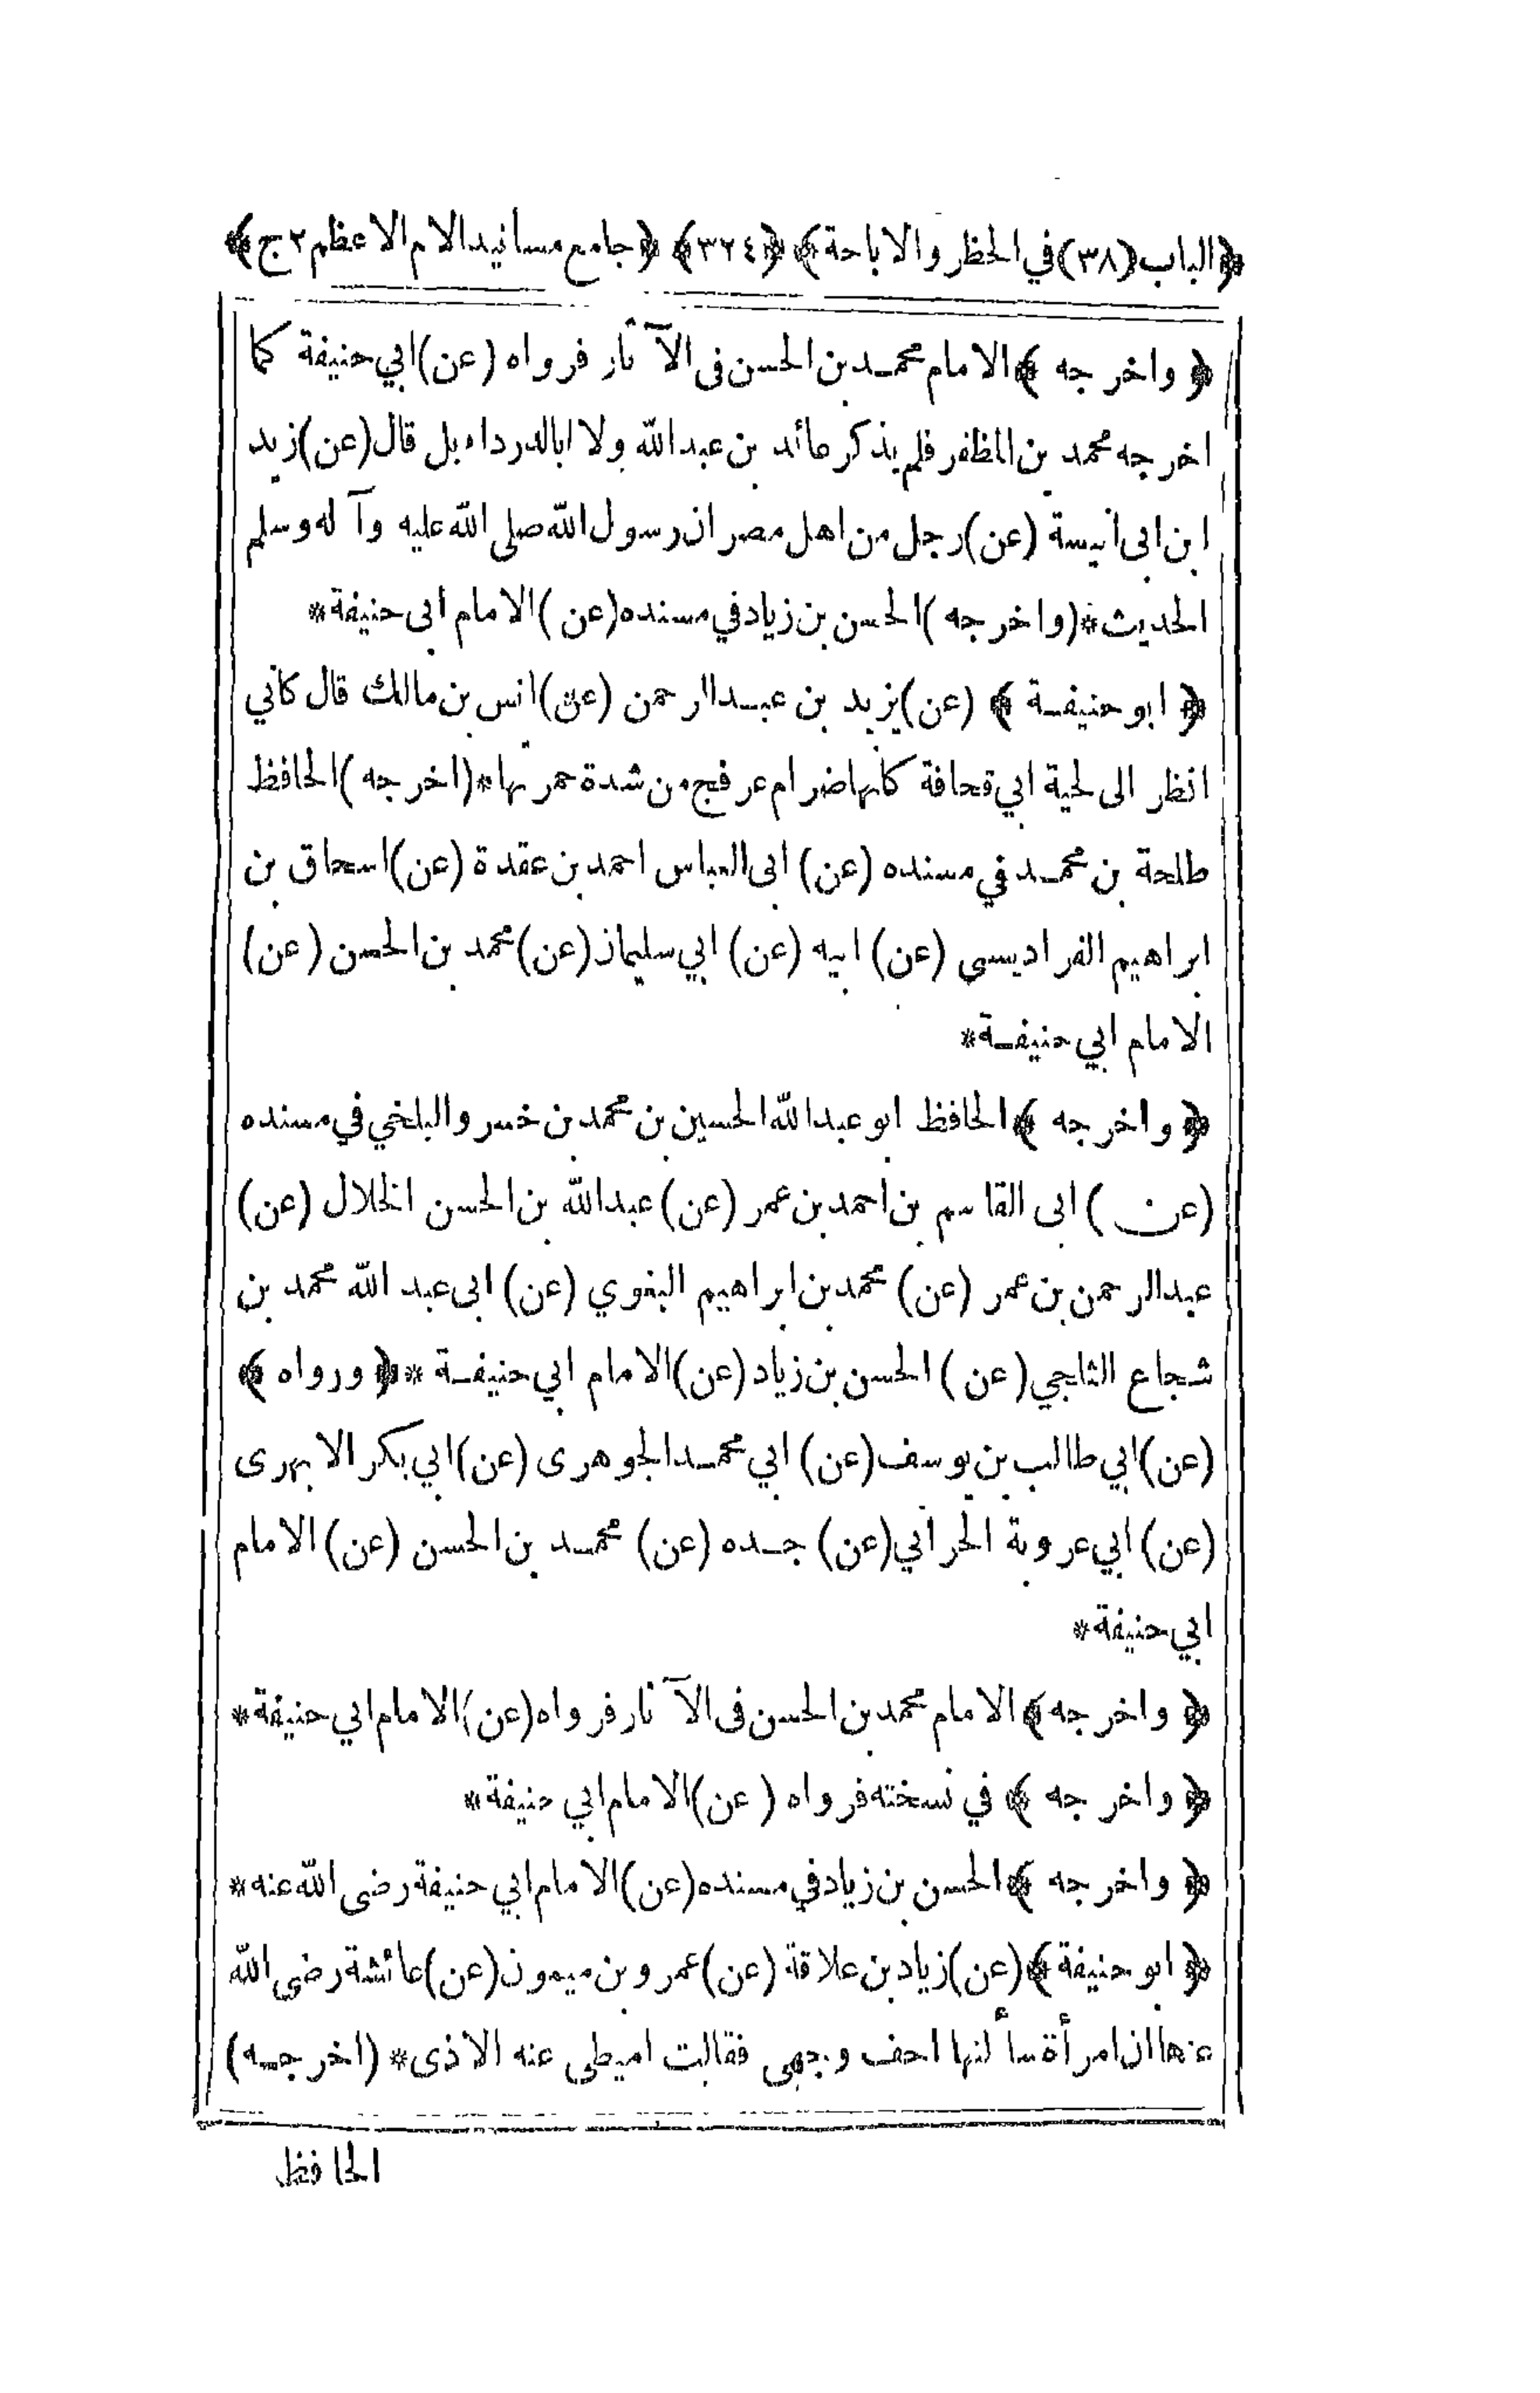 ﴿الباب (٣٨) في الحظر والاباحة﴾ ﴿٣٢٤﴾ ﴿جامع مسانيد الامام الاعظم ٢ ج﴾
﴿ واخرجه ﴾ الامام محمد بن الحسن فى الآثار فرواه (عن) ابي حنيفة كما
اخرجه محمد بن المظفر فلم يذكر عائد بن عبد الله ولا ابا الدرداء بل قال (عن) زيد
ابن ابى انيسة (عن) رجل من اهل مصر ان رسول الله صلى الله عليه وآله وسلم
الحديث * (واخرجه) الحسن بن زياد في مسنده (عن) الامام ابى حنيفة *
﴿ ابو حنيفة ﴾ (عن) يزيد بن عبد الرحمن (عن) انس بن مالك قال كأني
انظر الى لحية ابي قحافة كأنها ضرام عرفج من شدة حمرتها * (اخرجه) الحافظ
طلحة بن محمد في مسنده (عن) ابى العباس احمد بن عقدة (عن) اسحاق بن
ابراهيم الفراديسى (عن) ابيه (عن) ابي سليمان (عن) محمد بن الحسن (عن)
الامام ابي حنيفة *
﴿ واخرجه ﴾ الحافظ ابو عبد الله الحسين بن محمد بن خسرو البلخي في مسنده
(عن) ابى القاسم بن احمد بن عمر (عن) عبد الله بن الحسن الخلال (عن)
عبد الرحمن بن عمر (عن) محمد بن ابراهيم البغوي (عن) ابى عبد الله محمد بن
شجاع الثلجي (عن) الحسن بن زياد (عن) الامام ابي حنيفة * ﴿ ورواه ﴾
(عن) ابي طالب بن يوسف (عن) ابي محمد الجوهرى (عن) ابي بكر الابهرى
(عن) ابي عروبة الحراني (عن) جده (عن) محمد بن الحسن (عن) الامام
ابي حنيفة *
﴿ واخرجه ﴾ الامام محمد بن الحسن فى الآثار فرواه (عن) الامام ابي حنيفة *
﴿ واخرجه ﴾ في نسخته فرواه (عن) الامام ابي حنيفة *
﴿ واخرجه ﴾ الحسن بن زياد في مسنده (عن) الامام ابي حنيفة رضى الله عنه *
﴿ ابو حنيفة ﴾ (عن) زياد بن علاقة (عن) عمرو بن ميمون (عن) عائشة رضى الله
عنها ان امرأة سألتها احف وجهى فقالت اميطى عنه الاذى * (اخرجه)
الحافظ